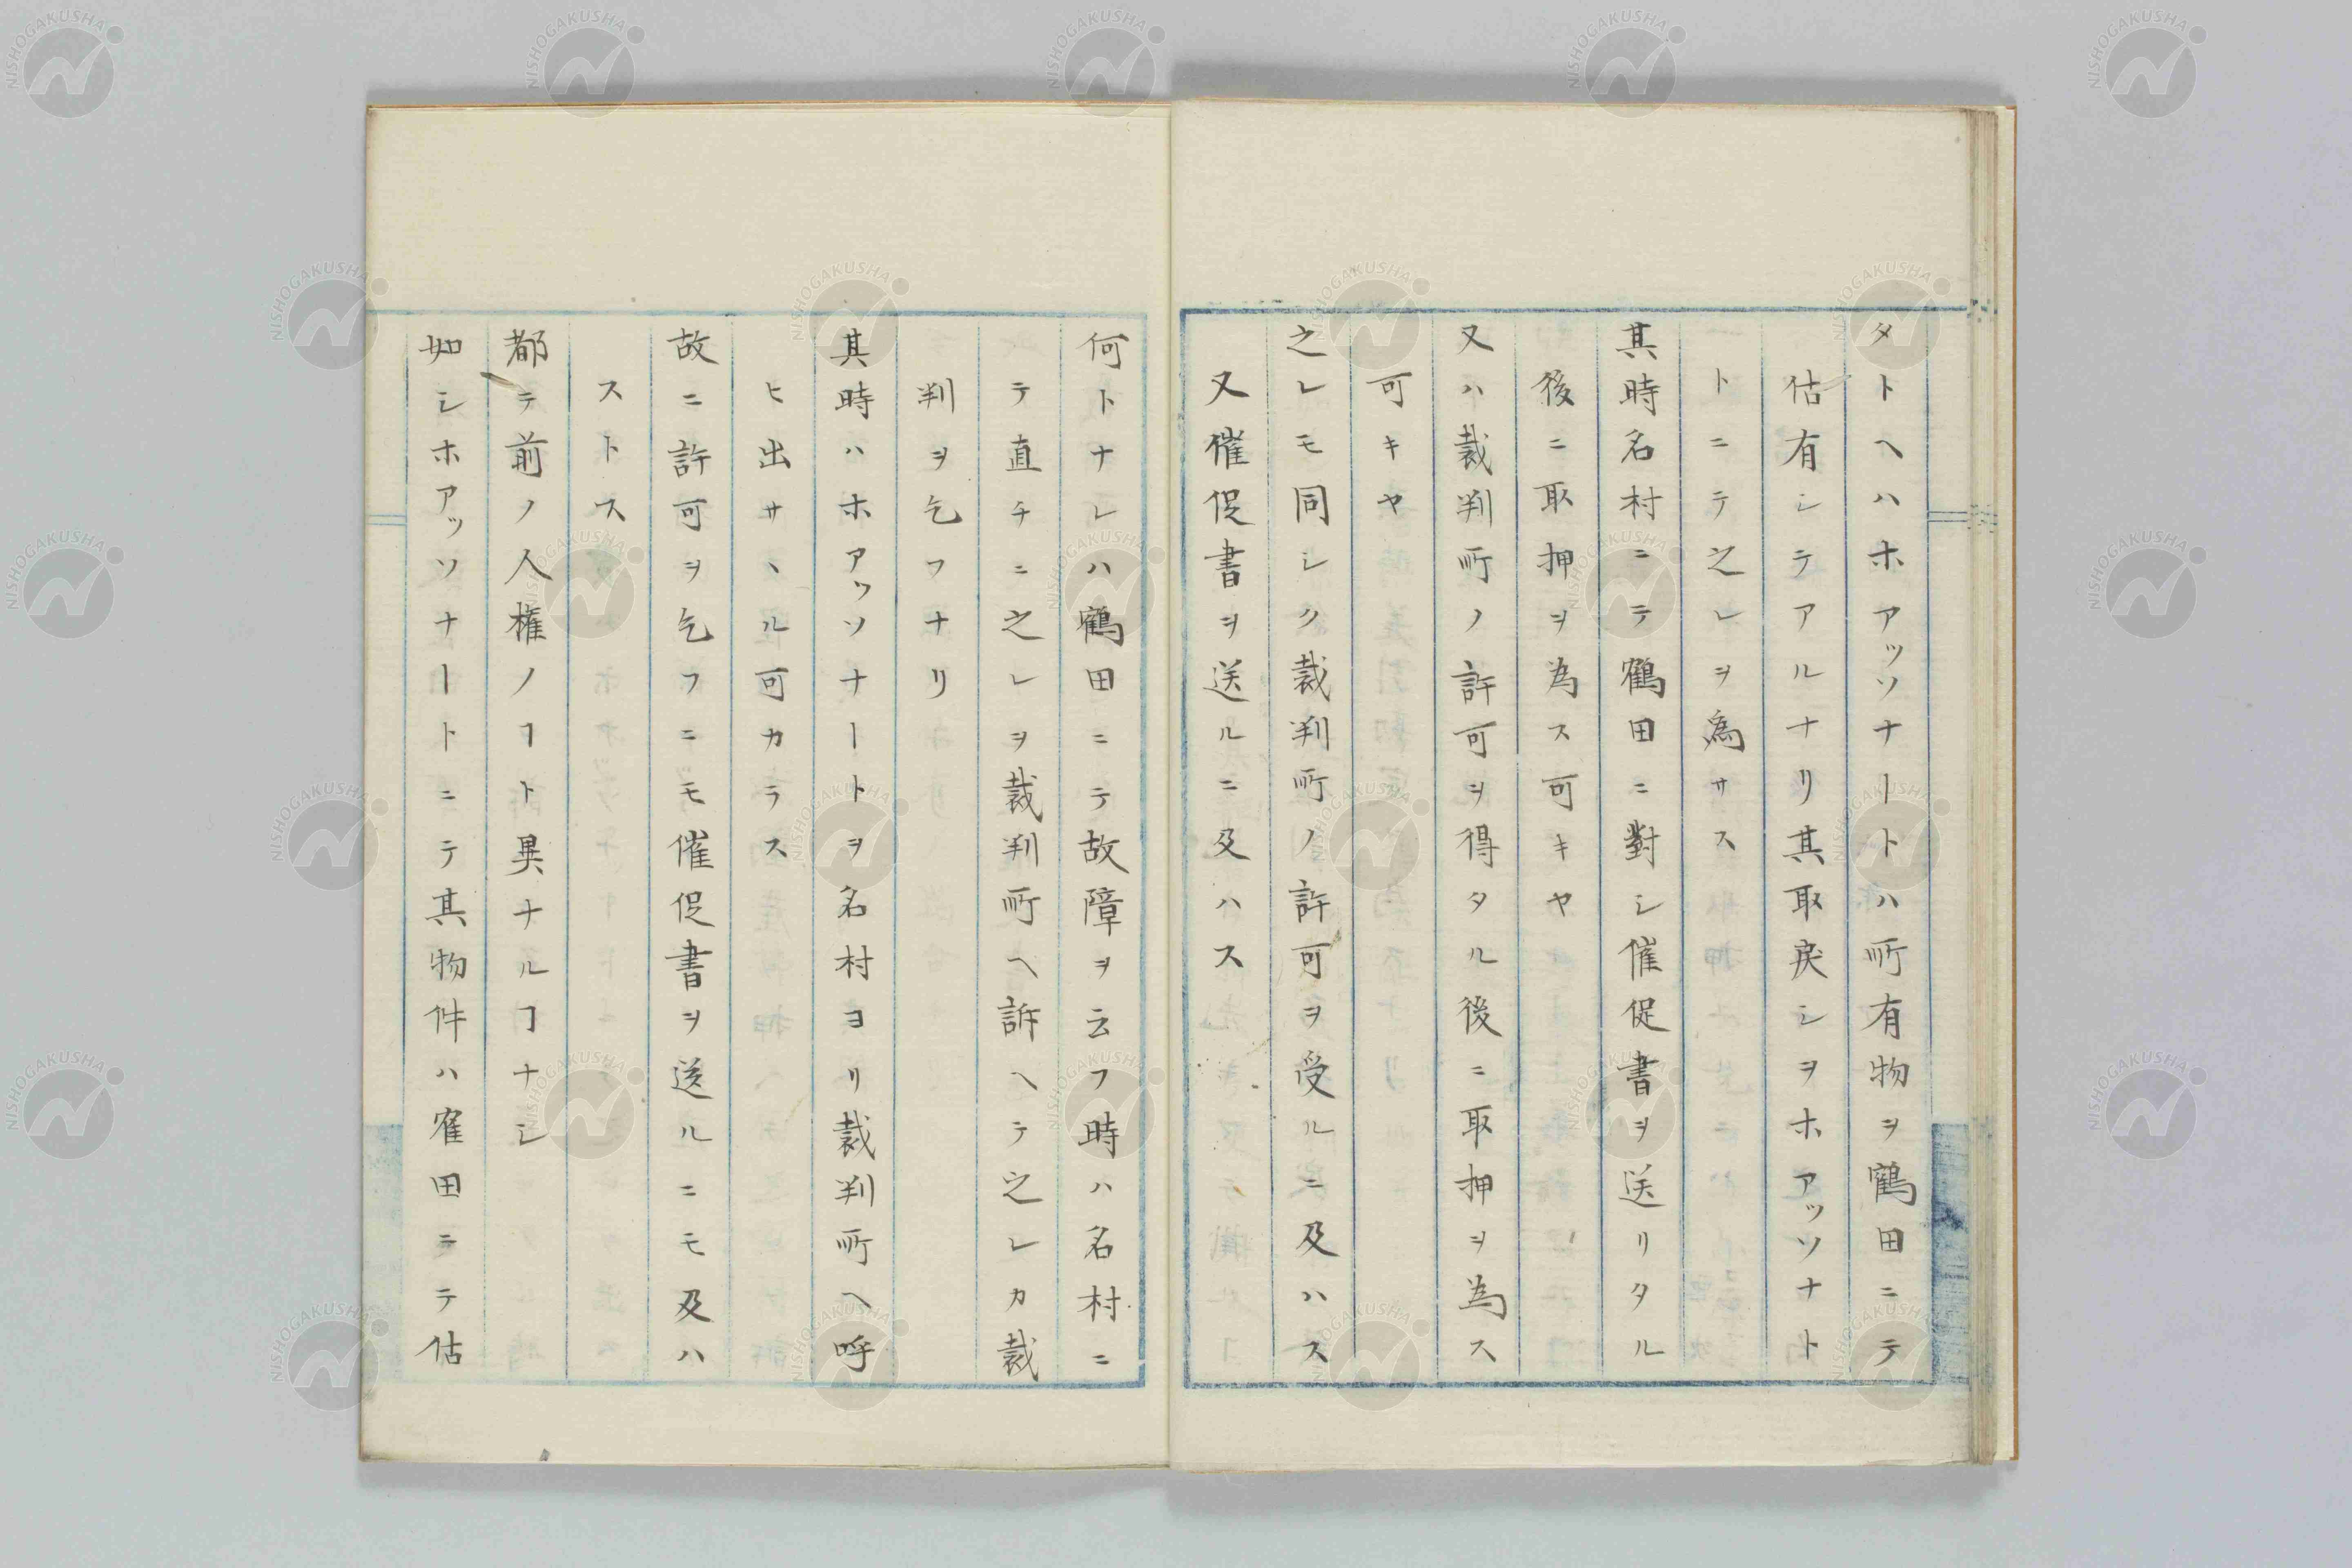 タトヘハホアッソナートハ所有物ヲ鶴田ニテ
估有シテアルナリ其取戻シヲホアッソナト
トニテ之レヲ為サス
其時名村ニテ鶴田ニ對シ催促書ヲ送リタル
後ニ取押ヲ為ス可キヤ
又ハ裁判所ノ許可ヲ得タル後ニ取押ヲ為ス
可キヤ
之レモ同シク裁判所ノ許可ヲ受ルニ及ハス
又催促書ヲ送ルニ及ハス
何トナレハ鶴田ニテ故障ヲ云フ時ハ名村ニ
テ直チニ之レヲ裁判所ヘ訴ヘテ之レカ裁
判ヲ乞フナリ
其時ハホアッソナートヲ名村ヨリ裁判所ヘ呼
ヒ出サヽル可カラス
故ニ許可ヲ乞フニモ催促書ヲ送ルニモ及ハ
ストス
都テ前ノ人権ノヿト異ナルヿナシ
如シホアッソナートニテ其物件ハ寉田ニテ估
NISHOGAKUSHA